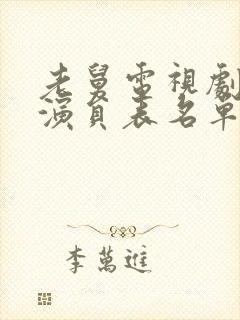 老舅電視劇
演員表名單
李萬進